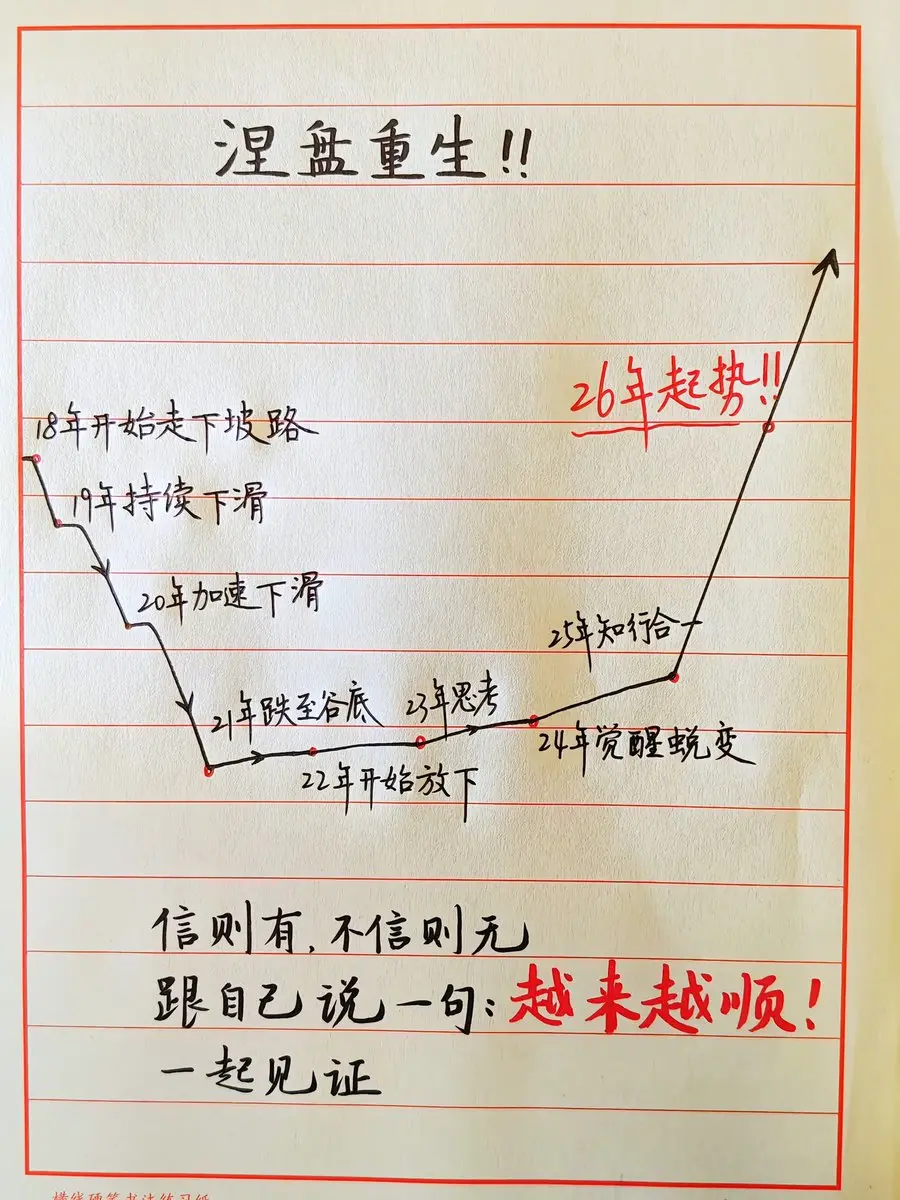 涅盘重生!!
26年起势!!
18年开始走下坡路
19年持续下滑
20年加速下滑
25年知行合一
21年跌至谷底
23年思考
24年觉醒蜕变
22年开始放下
信则有,不信则无
跟自己说一句:越来越顺!
一起见证
横线硬笔书法练习纸